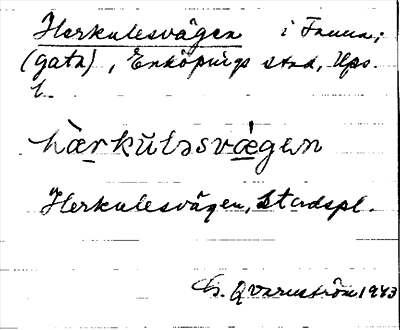 Herkulesvägen i Fanna;
(gata), Enköpings stad, Ups.
l.
hàrkulǝsvǽgen
Herkulesvägen, Stadspl.
G. Qvarnström 1943